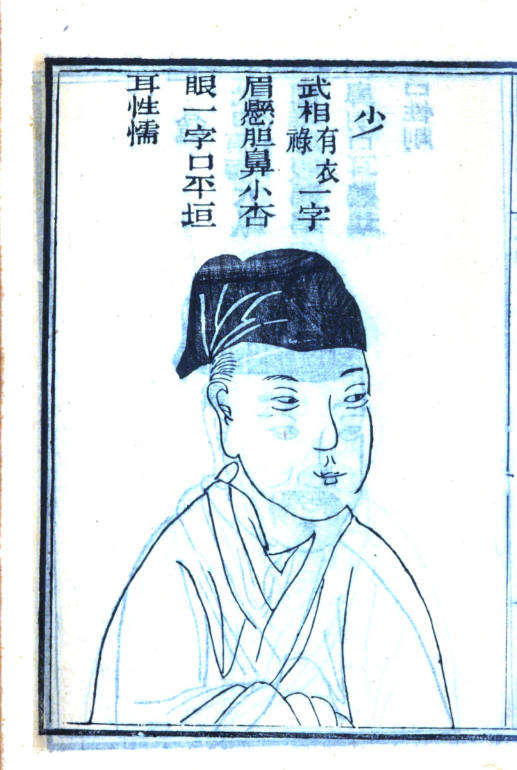 少
武相有衣祿一字
眉懸胆鼻小杏
眼一字口平垣
耳性懦